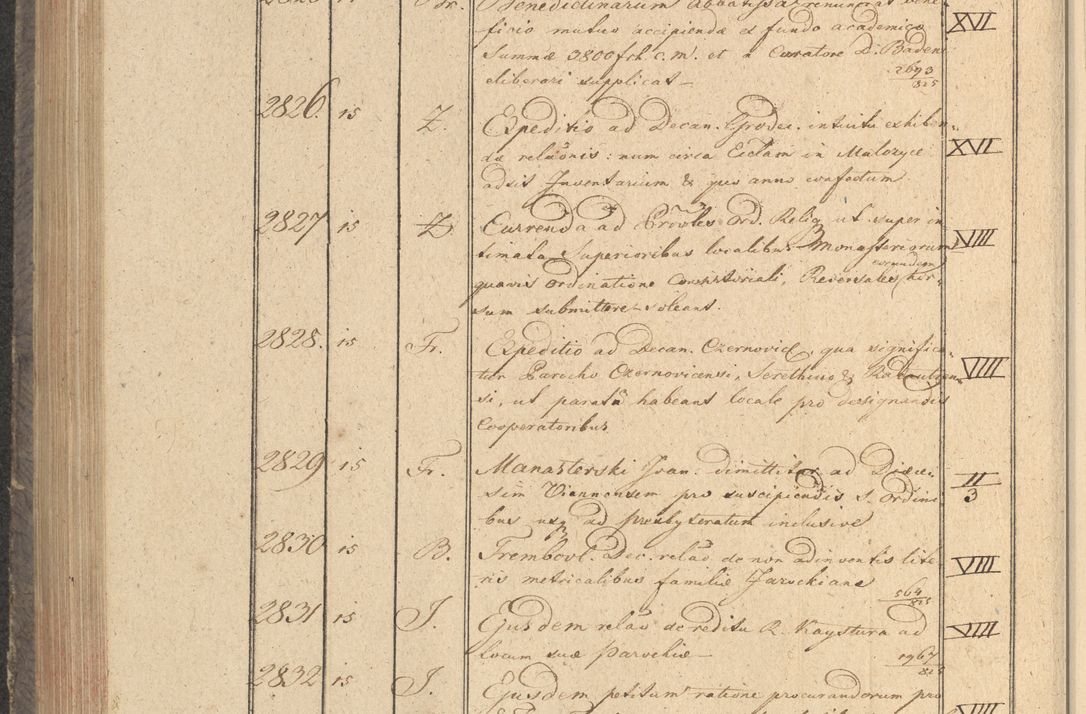 Benedictinarum Abbatissa renunciat bene-
ficio mutuo accipiendæ ex fundo academico XVI
Summæ 3800 frh. c.m. et a Curatore D. Badeni
eliberari supplicat – 2693/825
2826. 15 Z. Expeditio ad Decan. Grodec. intuitu exhiben-
dæ relaonis: num circa Eccłam in Malozyce XVII
adsit Inventarium & quo anno confectum.
2827 15 Z. Currenda ad Provles Ord. Relig. ut super in-
timata Superioribus localibus Monasteriorum VIII
quavis ordinatione Consistoriali, Reversales eorundem hor-
sum submittere soleant.
2828. 15 Fr. Expeditio ad Decan. Czernovic., qua significa-
tur Parocho Czernovicensi, Serethino & VIII
si, ut paratū habeant locale pro designandis
Cooperatoribus
2829 15 Fr. Manasterski Joan. dimittitur ad Diœce-
sim Viennensem pro suscipiendis s. Ordini- II/3
bus usq ad presbyteratum inclusive
2830 15 B. Trembovl. Dec. relaō de non adinventis lite-
ris metricalibus familiæ Jarockiane VIII
564/825
2831 15 J. Ejusdem relaō de reditu R. Kaystura ad VIII
locum suæ parochiæ – 1967/825
2832 15 J. Ejusdem petitum ratione procurandorum pro